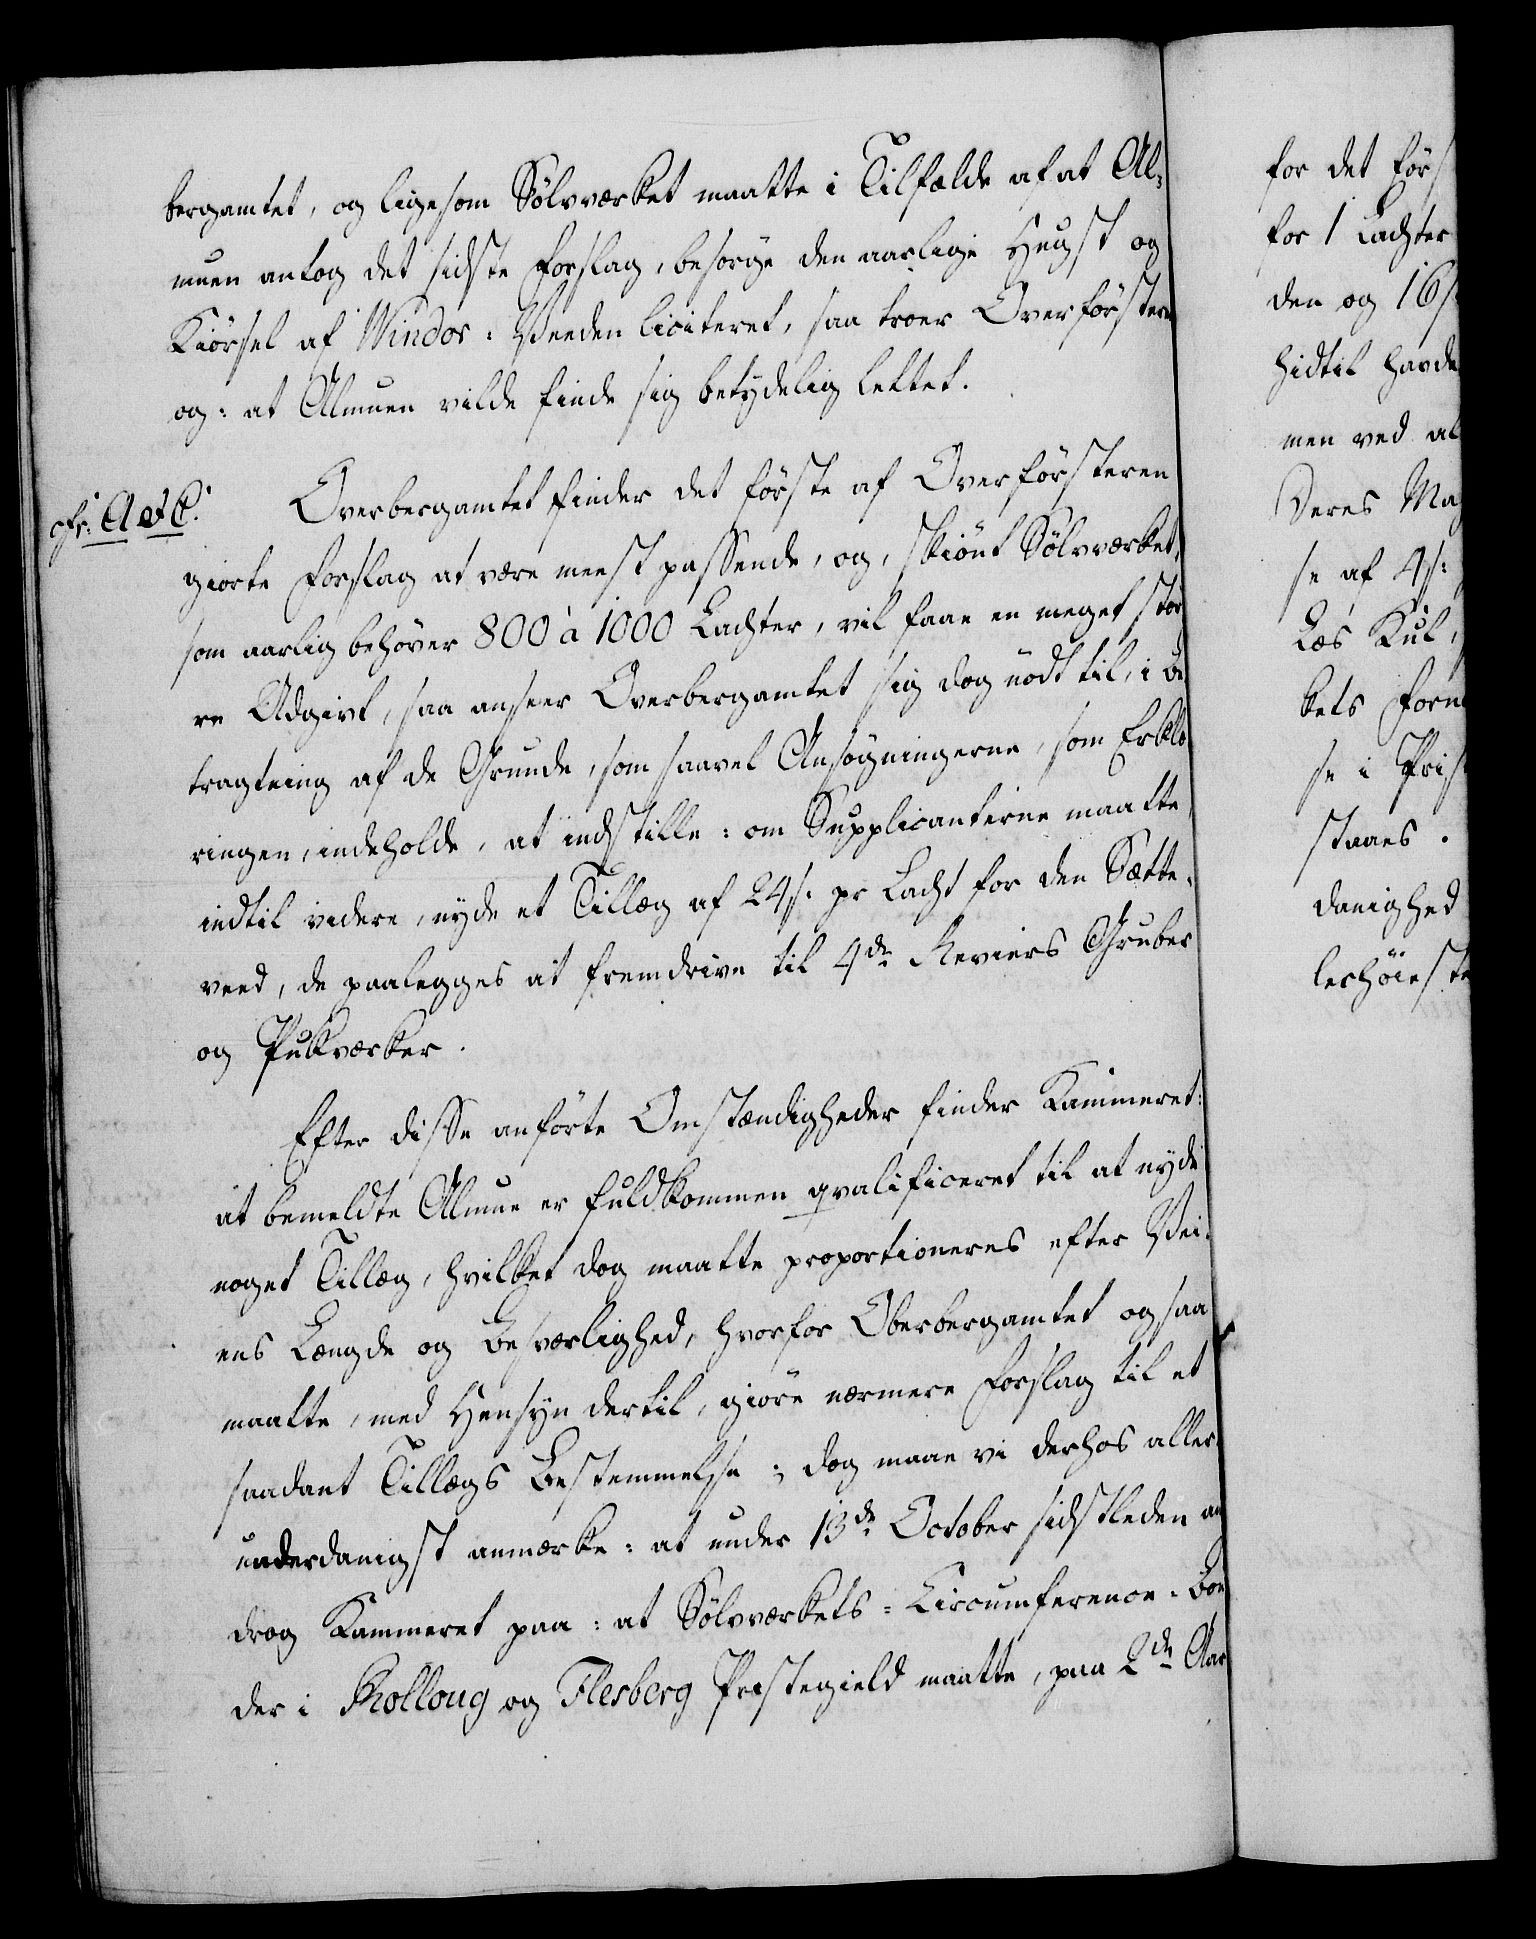 bergamtet, og ligesom Sölvværket maatte i Tilfælde af at Al-
muen antog det sidste Forslag, besörge den aarlige Hugst og
Kiörsel af Windor-Veeden liciteret, saa troer Overförsteren
og: at Almuen vilde finde sig betydelig lettet.
cfr: A et C.
Overbergamtet finder det förste af Overförsteren
giorte Forslag at være meest passende, og, skiönt Sölvværket,
som aarlig behöver 800 à 1000 Lachter, vil faae en meget stör-
re Udgivt, saa anseer Overbergamtet sig dog nödt til, i Be-
tragtning af de Grunde, som saavel Ansögningerne, som Erklæ-
ringen, indeholde, at indstille: om Supplicanterne maatte,
indtil videre, nyde et Tillæg af 24 s. pr Lacht for den Sætte-
veed, de paalegges at fremdrive til 4de Reviers Gruber
og Pukværker.
Efter disse anförte Omstændigheder finder Kammeret:
at bemeldte Almue er fuldkommen qvalificeret til at nyde
noget Tillæg, hvilket dog maatte proportioneres efter Vei-
ens Længde og Besværlighed, hvorfor Oberbergamtet ogsaa
maatte, med Hensyn dertil, giöre nærmere Forslag til et
saadant Tillægs Bestemmelse; dog maae vi derhos aller-
underdanigst anmærke: at under 13de October sidstleden an-
drog Kammeret paa: at Sölvværkets-Circumference-Bön-
der i Rolloug og Flesberg Præstegield maatte, paa 2de Aar
for det förs
for 1 Lachter
den og 16 s
hidtil havde
men ved al
Deres Maj
se af 4 s:
Læs Kul,
kets Forn
se i Pris
staaes.
danighed
lerhöieste